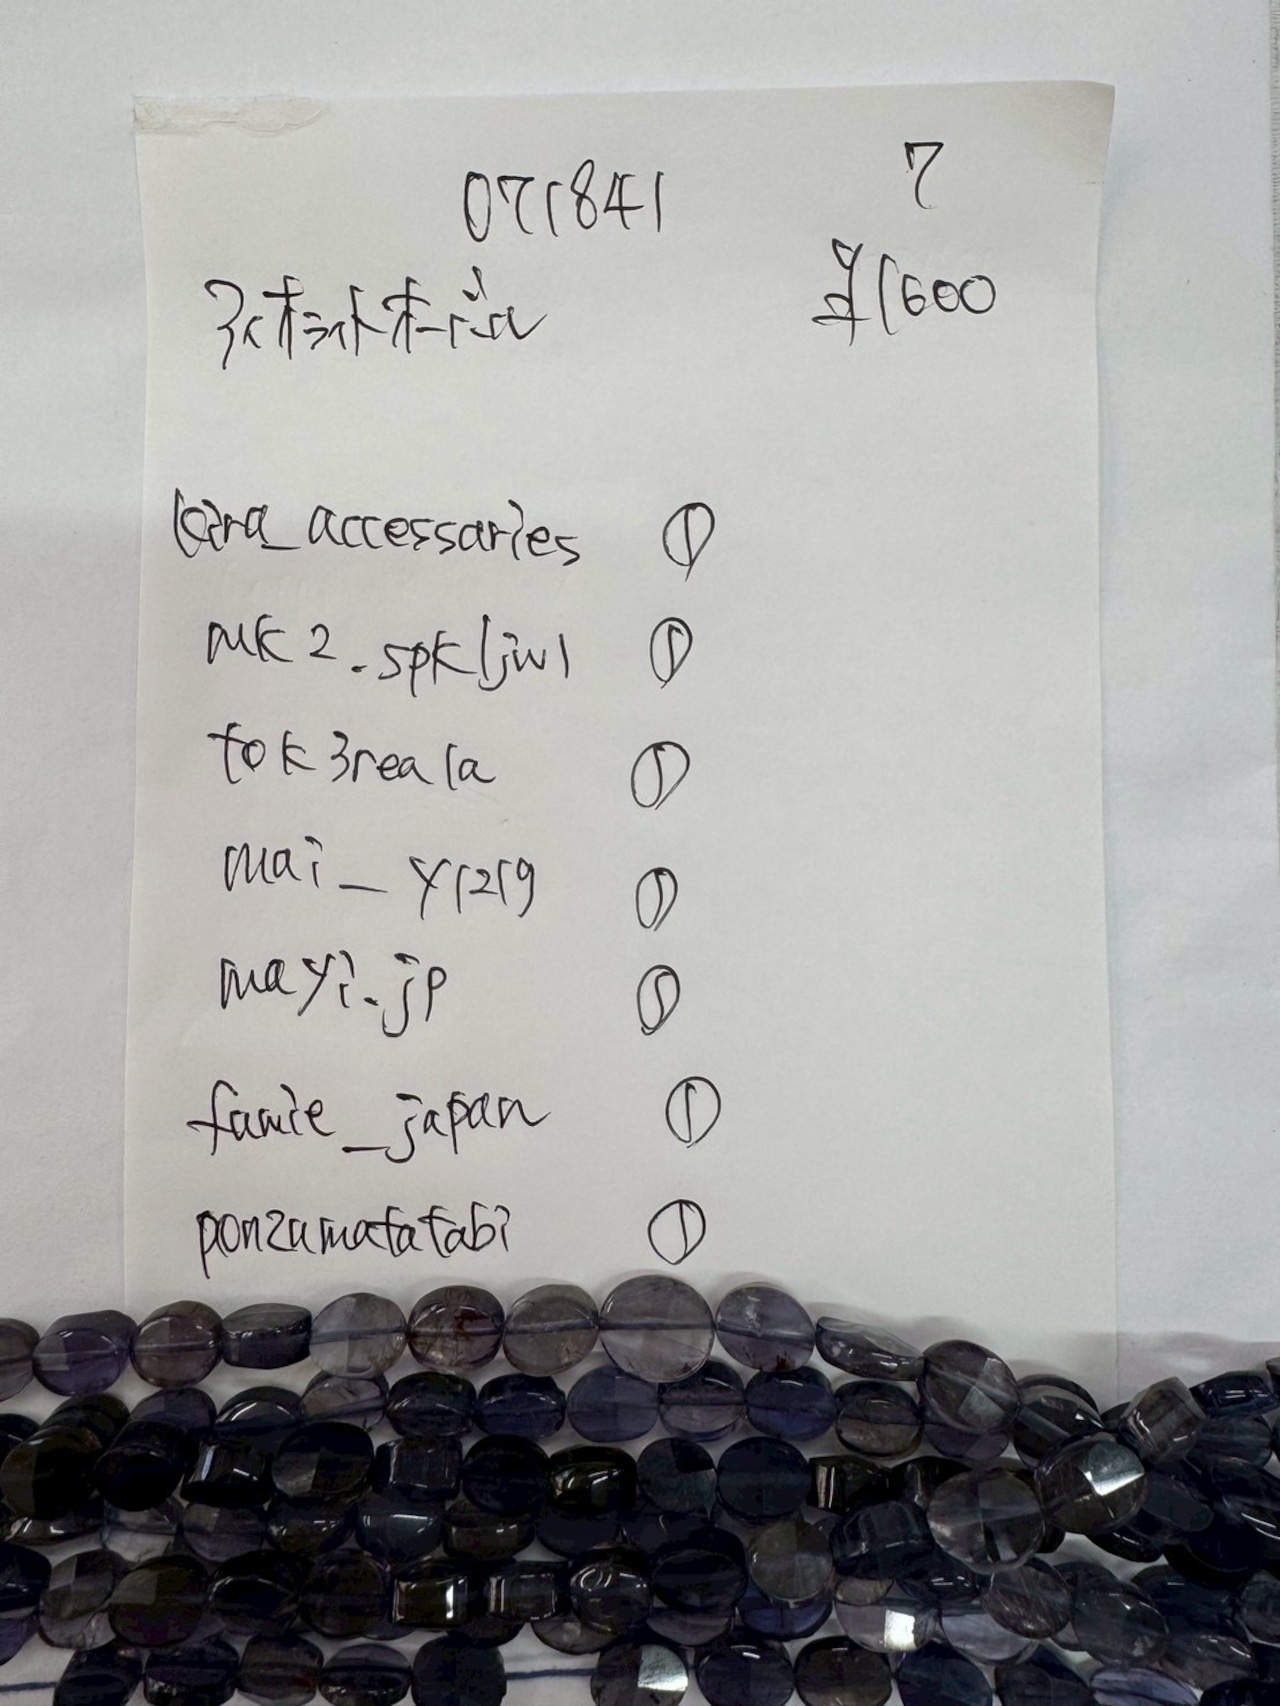 071841 7
アイオライトオーバル ¥1600
kira_accessaries ①
mk2.spkljwl ①
tok3reala ①
mai_y1219 ①
mayi.jp ①
famie_japan ①
ponzumatatabi ①